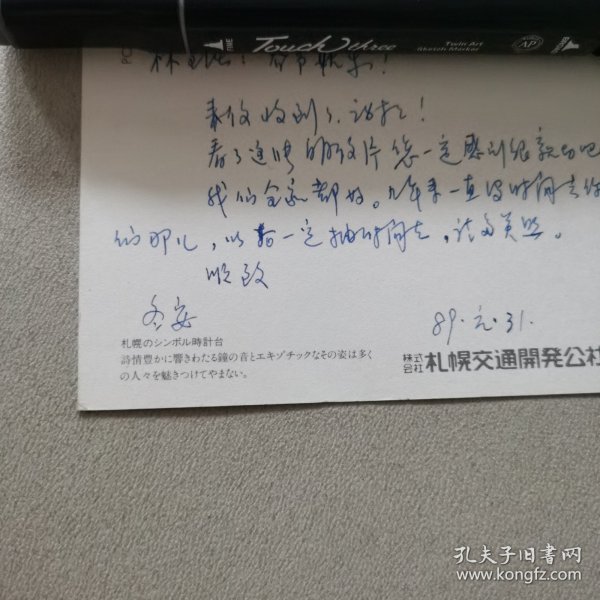 FINE
Touch three
Twin Art
Sketch Marker
AP
BRUSH
PC
春节快乐!
来信收到了,谢谢!
看了这张明信片您一定感到很亲切吧
我们全家都好。几年来一直没时间去你
们那儿,以后一定抽时间去,请多关照。
顺致
冬安
89.元.31.
札幌のシンボル時計台
詩情豊かに響きわたる鐘の音とエキゾチックなその姿は多く
の人々を魅きつけてやまない。
株式会社 札幌交通開発公社
孔夫子旧书网
www.kongfz.com